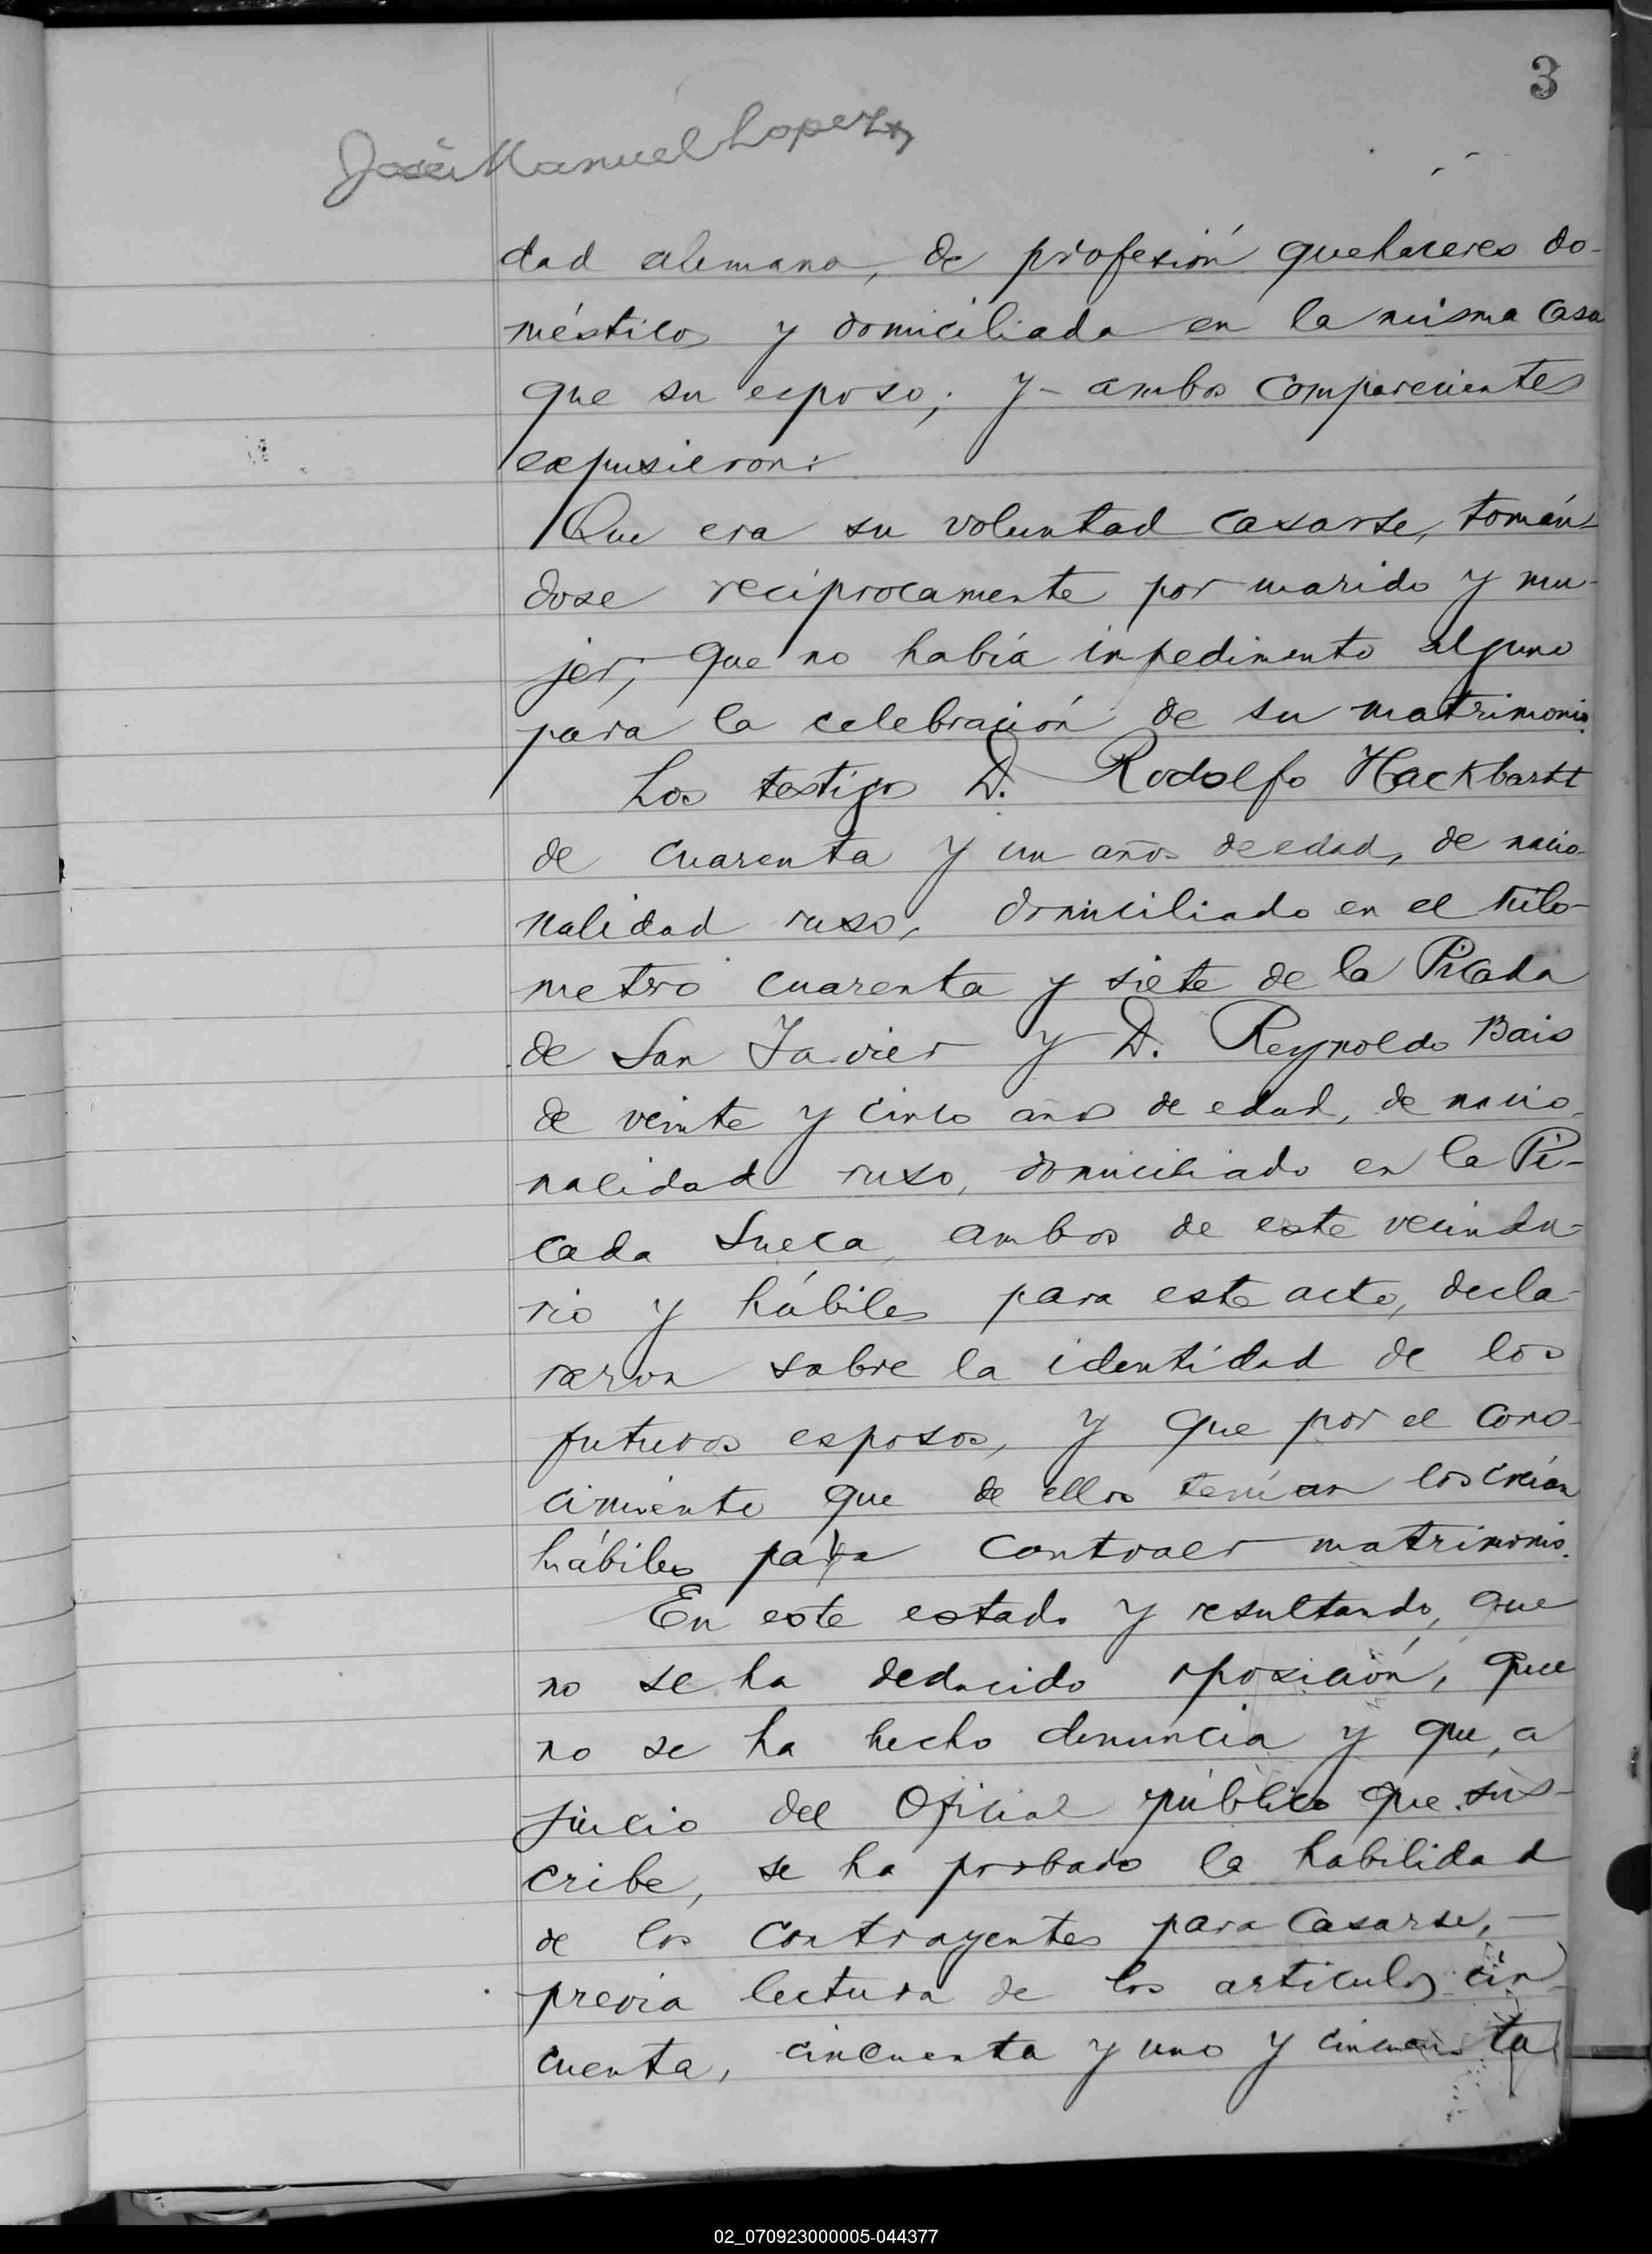 3
José Manuel Lopez
dad alemana, de profesión quehaceres do-
mésticos y domiciliada en la misma casa
que su esposo; y ambos comparecientes
expusieron:
Que era su voluntad casarse, tomán-
dose reciprocamente por marido y mu-
jer; que no había impedimento alguno
para la celebración de su matrimonio.
Los testigos D. Rodolfo Hackbartt
de cuarenta y un años de edad, de nacio-
nalidad ruso, domiciliado en el kilo-
metro cuarenta y siete de la Picada
de San Javier y D. Reynoldo Bais
de veinte y cinco años de edad, de nacio-
nalidad ruso, domiciliado en la Pi-
cada Sueca, ambos de este vecinda-
rio y hábiles para este acto, decla-
raron sobre la identidad de los
futuros esposos, y que por el cono-
cimiento que de ellos tenían los creían
hábiles para contraer matrimonio.
En este estado y resultando, que
no se ha deducido oposición, que
no se ha hecho denuncia y que, a
juicio del Oficial público que sus-
cribe, se ha probado la habilidad
de los contrayentes para casarse, —
previa lectura de los articulos cin-
cuenta, cincuenta y uno y cincuenta
02_070923000005-044377